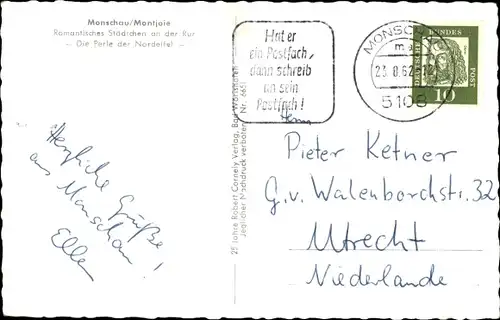 Monschau/Montjoie
Romantisches Städtchen an der Rur
– Die Perle der Nordeifel –
Herzliche Grüße
aus Monschau!
Ellen
25 Jahre Robert Cornely Verlag, Bad
Jeglicher Nachdruck verboten! Nr. 6651
Hat er
ein Postfach,
dann schreib
an sein
Postfach!
MONSCH
23.8.62-12
5108
DEUTSCHE BUNDES POST
10
Herrn
Pieter Ketner
G.v. Walenborchstr. 32
Utrecht
Niederlande